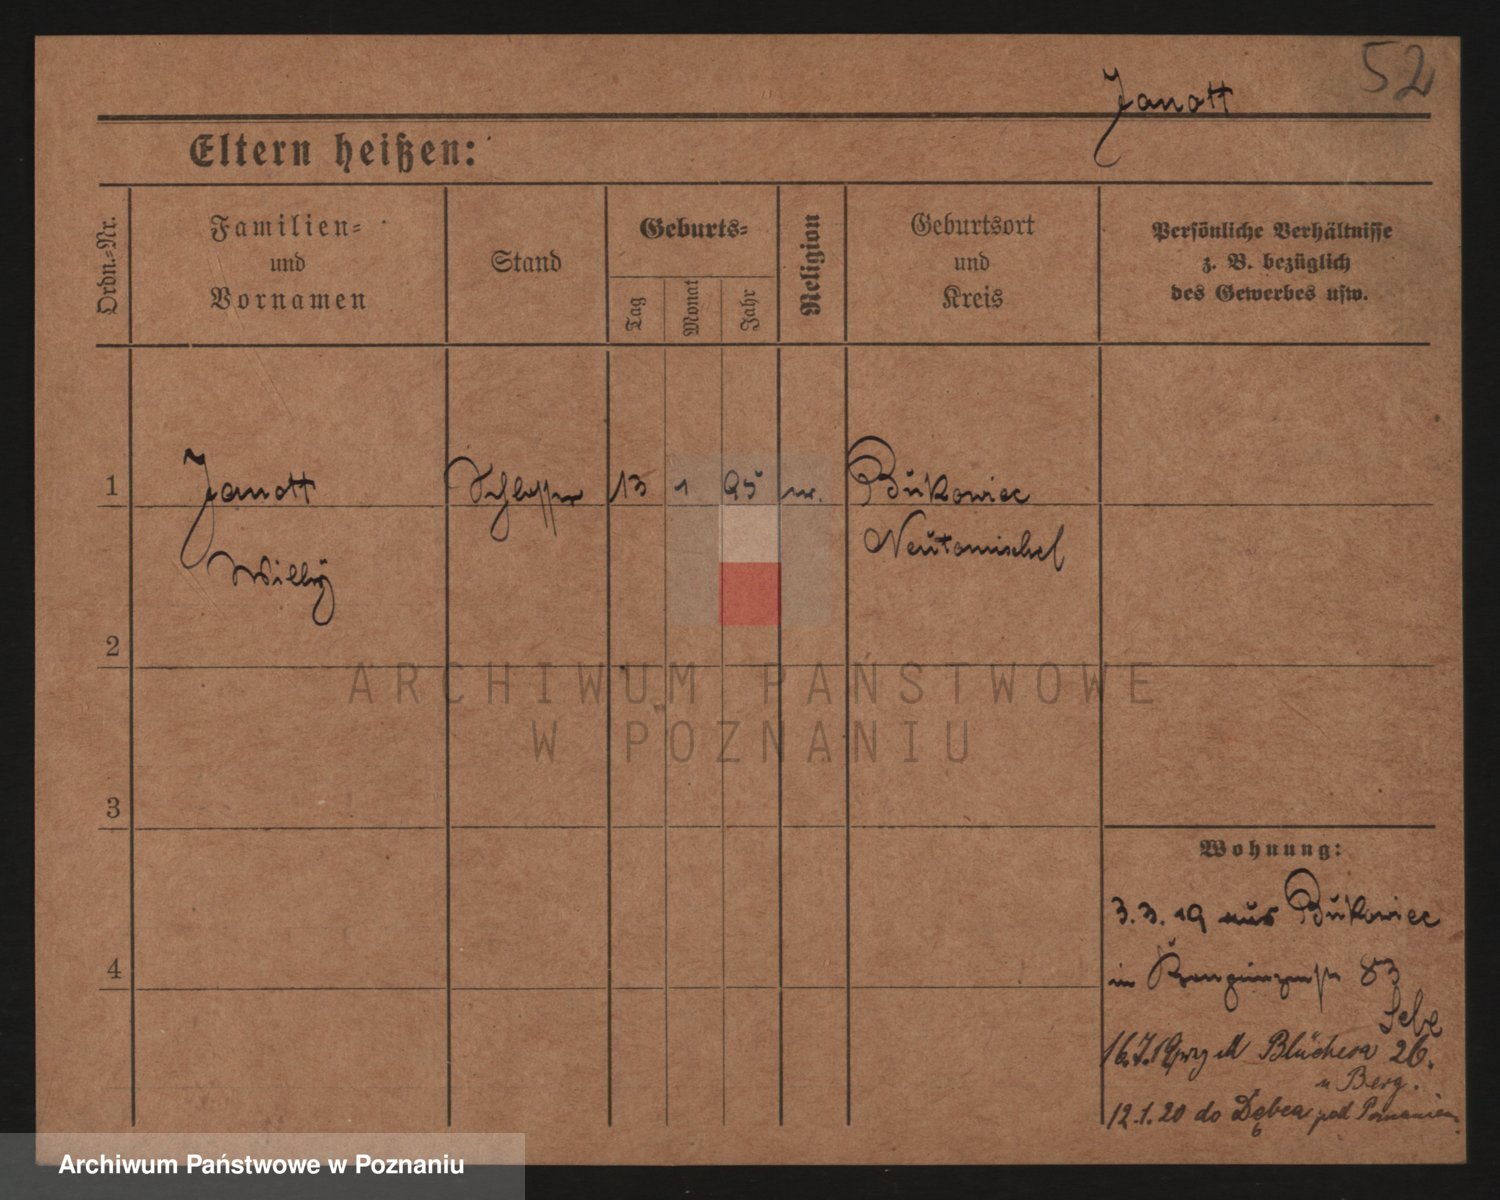 52
Janott
Eltern heißen:
Ordn.-Nr.
Familien-
und
Vornamen
Stand
Geburts-
Tag
Monat
Jahr
Religion
Geburtsort
und
Kreis
Persönliche Verhältnisse
z. B. bezüglich
des Gewerbes usw.
1
Janott
Schlosser
13
1
95
ev.
Bukowiec
Neutomischel
Willy
2
ARCHIWUM PAŃSTWOWE
W POZNANIU
3
Wohnung:
3.3.19 aus Bukowiec
4
in 83
16.7.19 Blüchera 26.
u Berg.
12.1.20 do Dębca pod Poznaniem
Archiwum Państwowe w Poznaniu